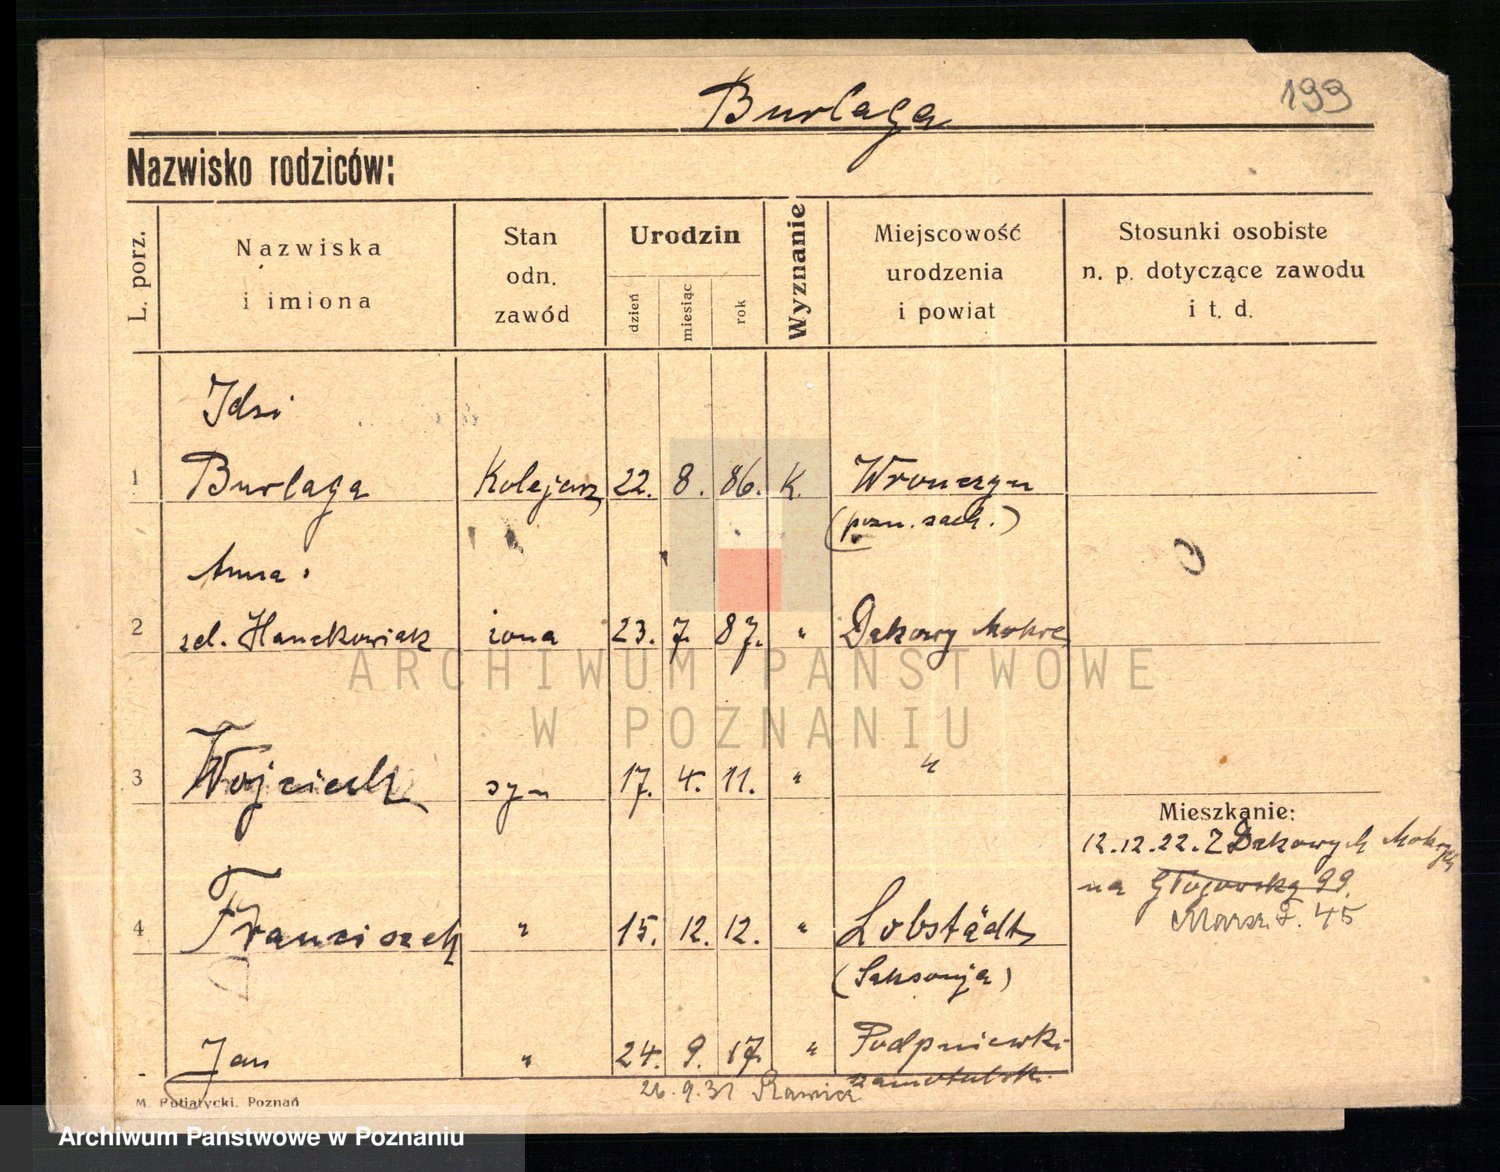 Burlaga
199
Nazwisko rodziców:
L. porz.
Nazwiska
i imiona
Stan
odn.
zawód
Urodzin
dzień
miesiąc
rok
Wyznanie
Miejscowość
urodzenia
i powiat
Stosunki osobiste
n. p. dotyczące zawodu
i t. d.
Idzi
1 Burlaga Kolejarz 22. 8. 86. K. Wronczyn
(pozn. zach.)
Anna
2 zd. Hanckowiak żona 23. 7. 87. " Dakowy Mokre
3 Wojciech syn 17. 4. 11. " "
Mieszkanie:
12.12.22. Z Dakowych Mokrych
na Głogowską 99.
Marsz. F. 45
4 Franciszek " 15. 12. 12. " Lobstädt
(Saksonja)
Jan " 24. 9. 17. " Podpniewki
szamotulski.
26.9.31 Rawicz
M. Putiatycki, Poznań
ARCHIWUM PAŃSTWOWE
W POZNANIU
Archiwum Państwowe w Poznaniu